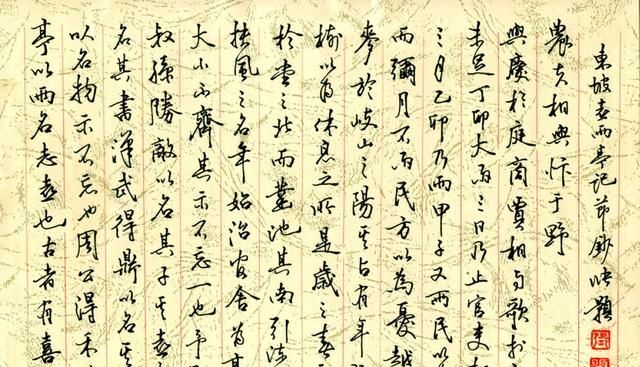 亭以雨名志喜也古者有喜
以名物示不忘也周公得禾
名其書漢武得鼎以名其
叔孫勝敵以名其子其喜
大小不齊其示不忘一也予
扶風之名年始治官舍為
於堂之北而鑿池其南引流
樹以為休息之所是歲之春
麥於岐山之陽其占有年
而彌月不雨民方以為憂越
三月乙卯乃雨甲子又雨民以
未足丁卯大雨三日乃止官吏
與慶於庭商賈相與歌於
農夫相與忭于野
東坡喜雨亭記節鈔題